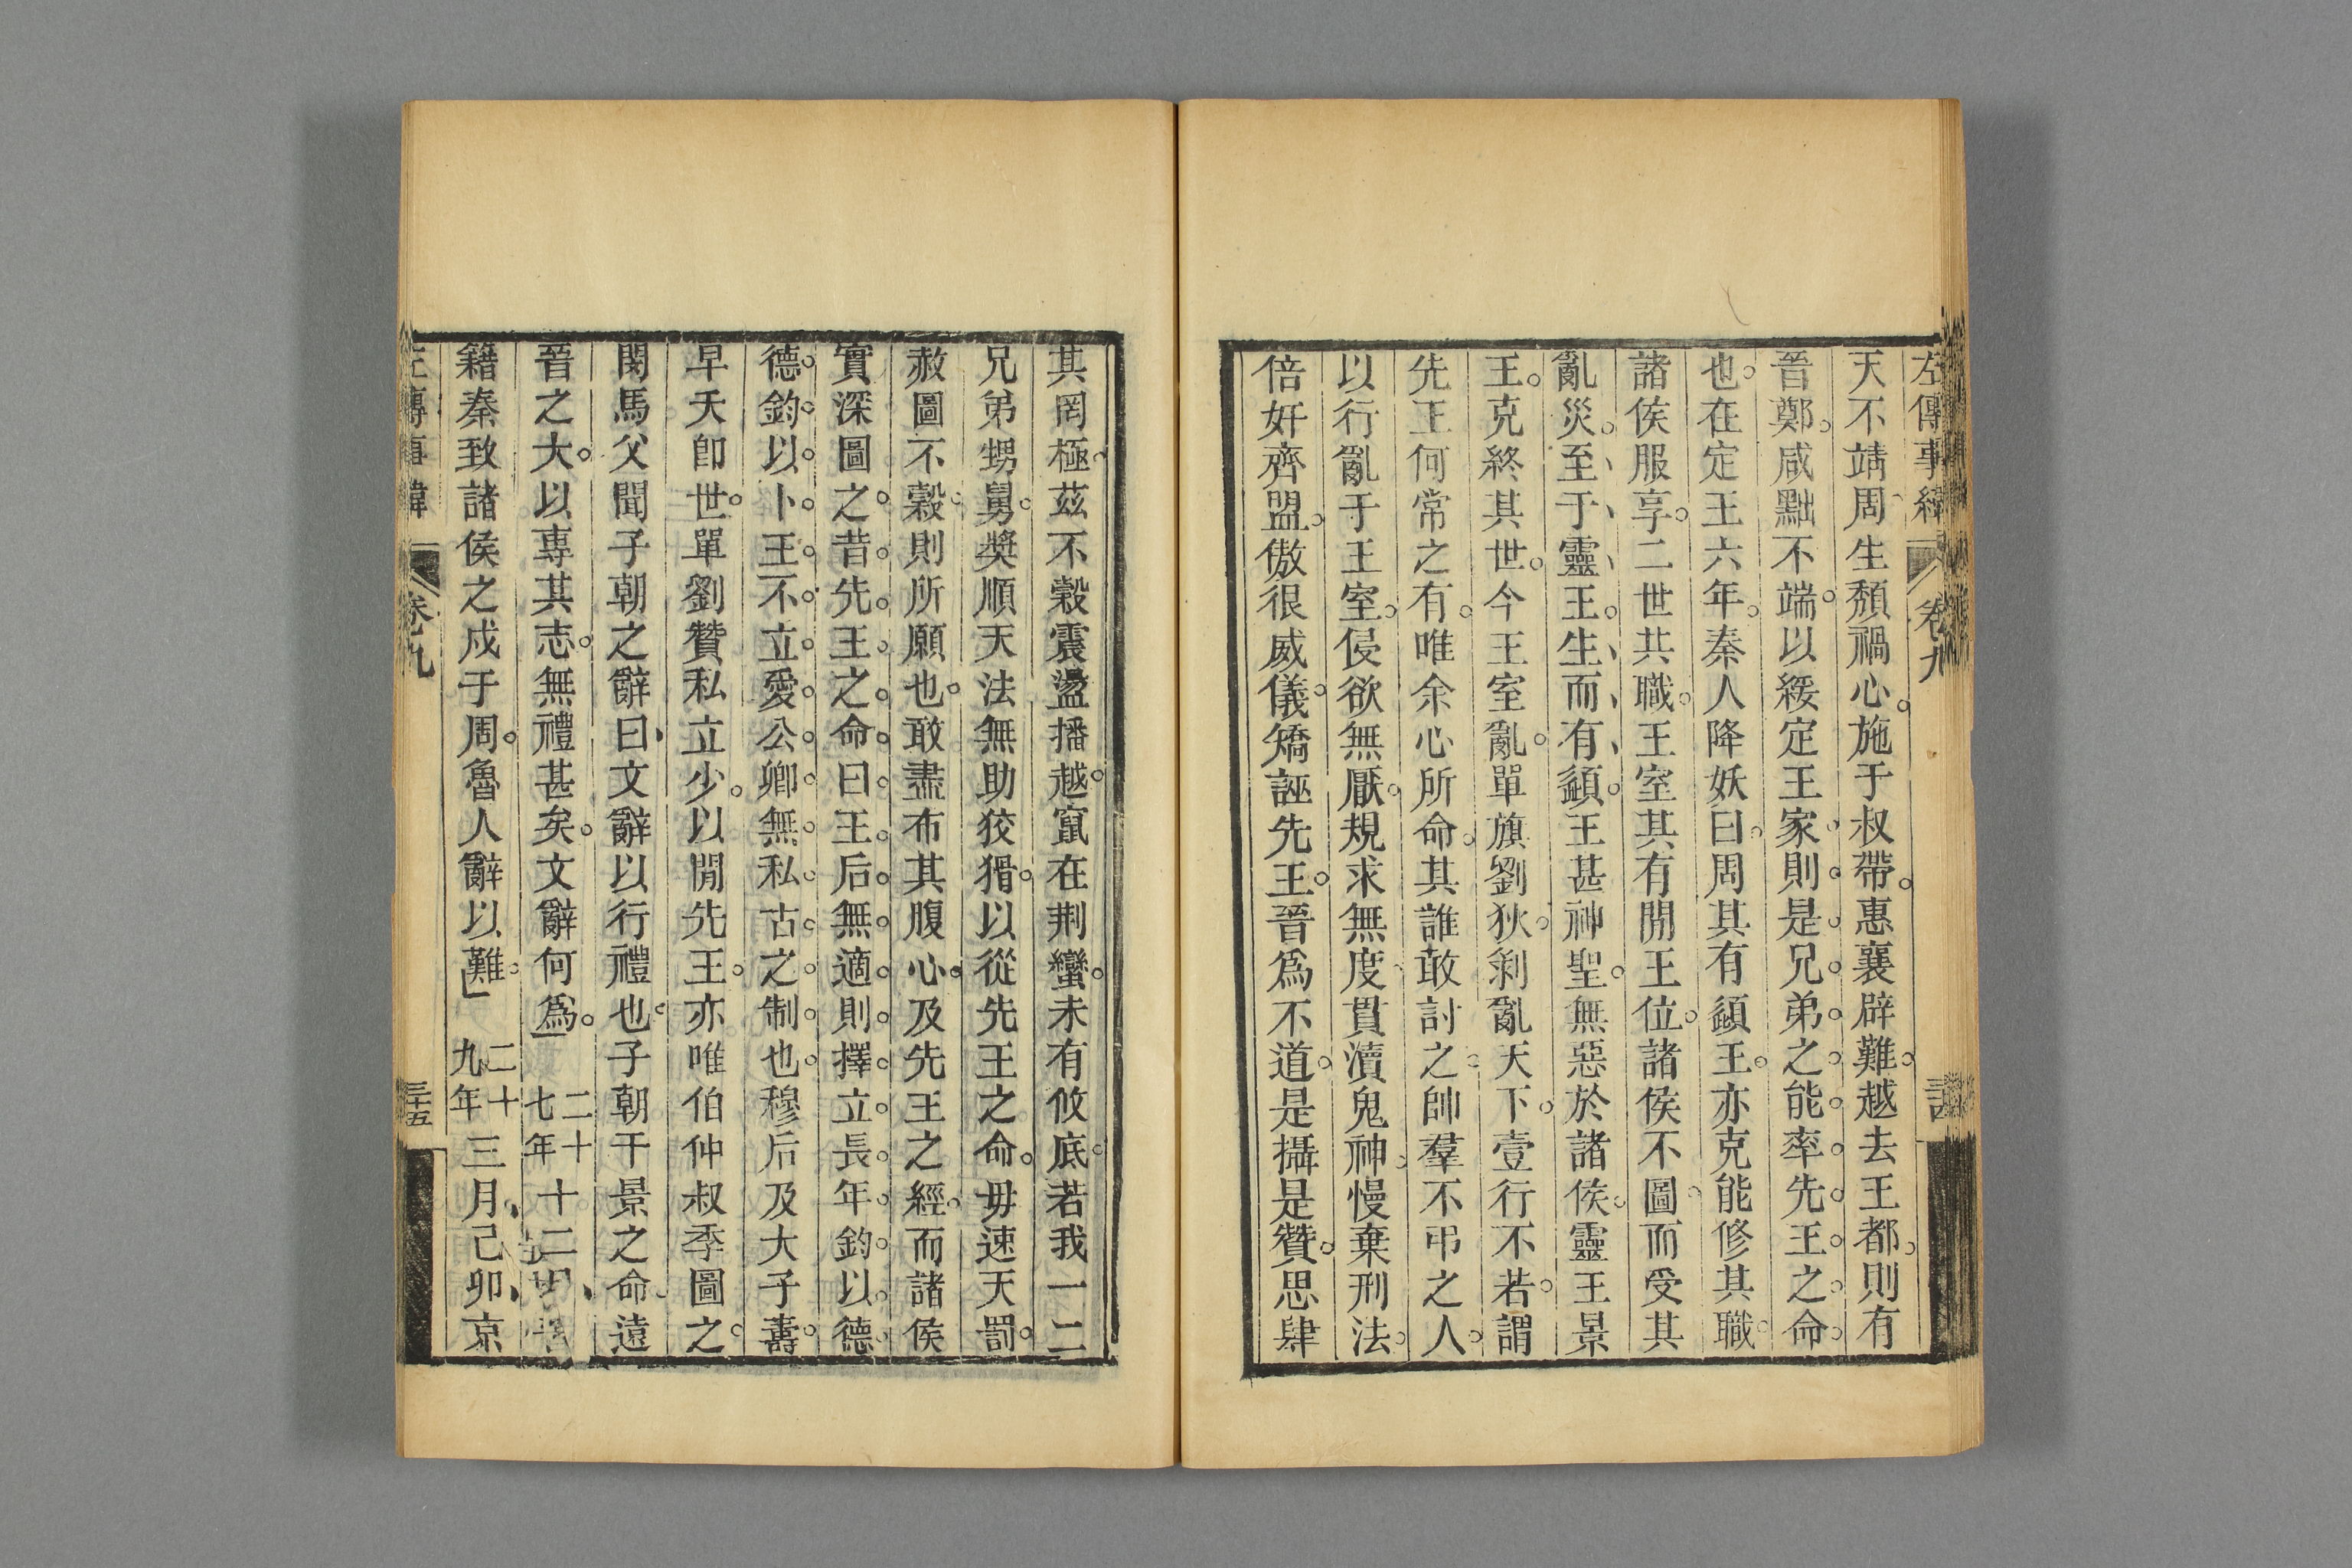 左傳事緯 卷九
天不靖周生頹禍心施于叔帶惠襄辟難越去王都則有
晉鄭咸黜不端以綏定王家則是兄弟之能率先王之命
也在定王六年秦人降妖曰周其有頿王亦克能修其職
諸侯服享二世共職王室其有閒王位諸侯不圖而受其
亂災至于靈王生而有頿王甚神聖無惡於諸侯靈王景
王克終其世今王室亂單旗劉狄剝亂天下壹行不若謂
先王何常之有唯余心所命其誰敢討之帥羣不弔之人
以行亂于王室侵欲無厭規求無度貫瀆鬼神慢棄刑法
倍奸齊盟傲很威儀矯誣先王晉爲不道是攝是贊思肆
其罔極茲不穀震盪播越竄在荆蠻未有攸底若我一二
兄弟甥舅奬順天法無助狡猾以從先王之命毋速天罰
赦圖不穀則所願也敢盡布其腹心及先王之經而諸侯
實深圖之昔先王之命曰王后無適則擇立長年鈞以德
德鈞以卜王不立愛公卿無私古之制也穆后及大子壽
早夭卽世單劉贊私立少以閒先王亦唯伯仲叔季圖之
閔馬父聞子朝之辭曰文辭以行禮也子朝干景之命遠
晉之大以專其志無禮甚矣文辭何爲 二十七年 十二
籍秦致諸侯之戍于周魯人辭以難 二十九年 三月己卯京
左傳事緯 卷九 三十五